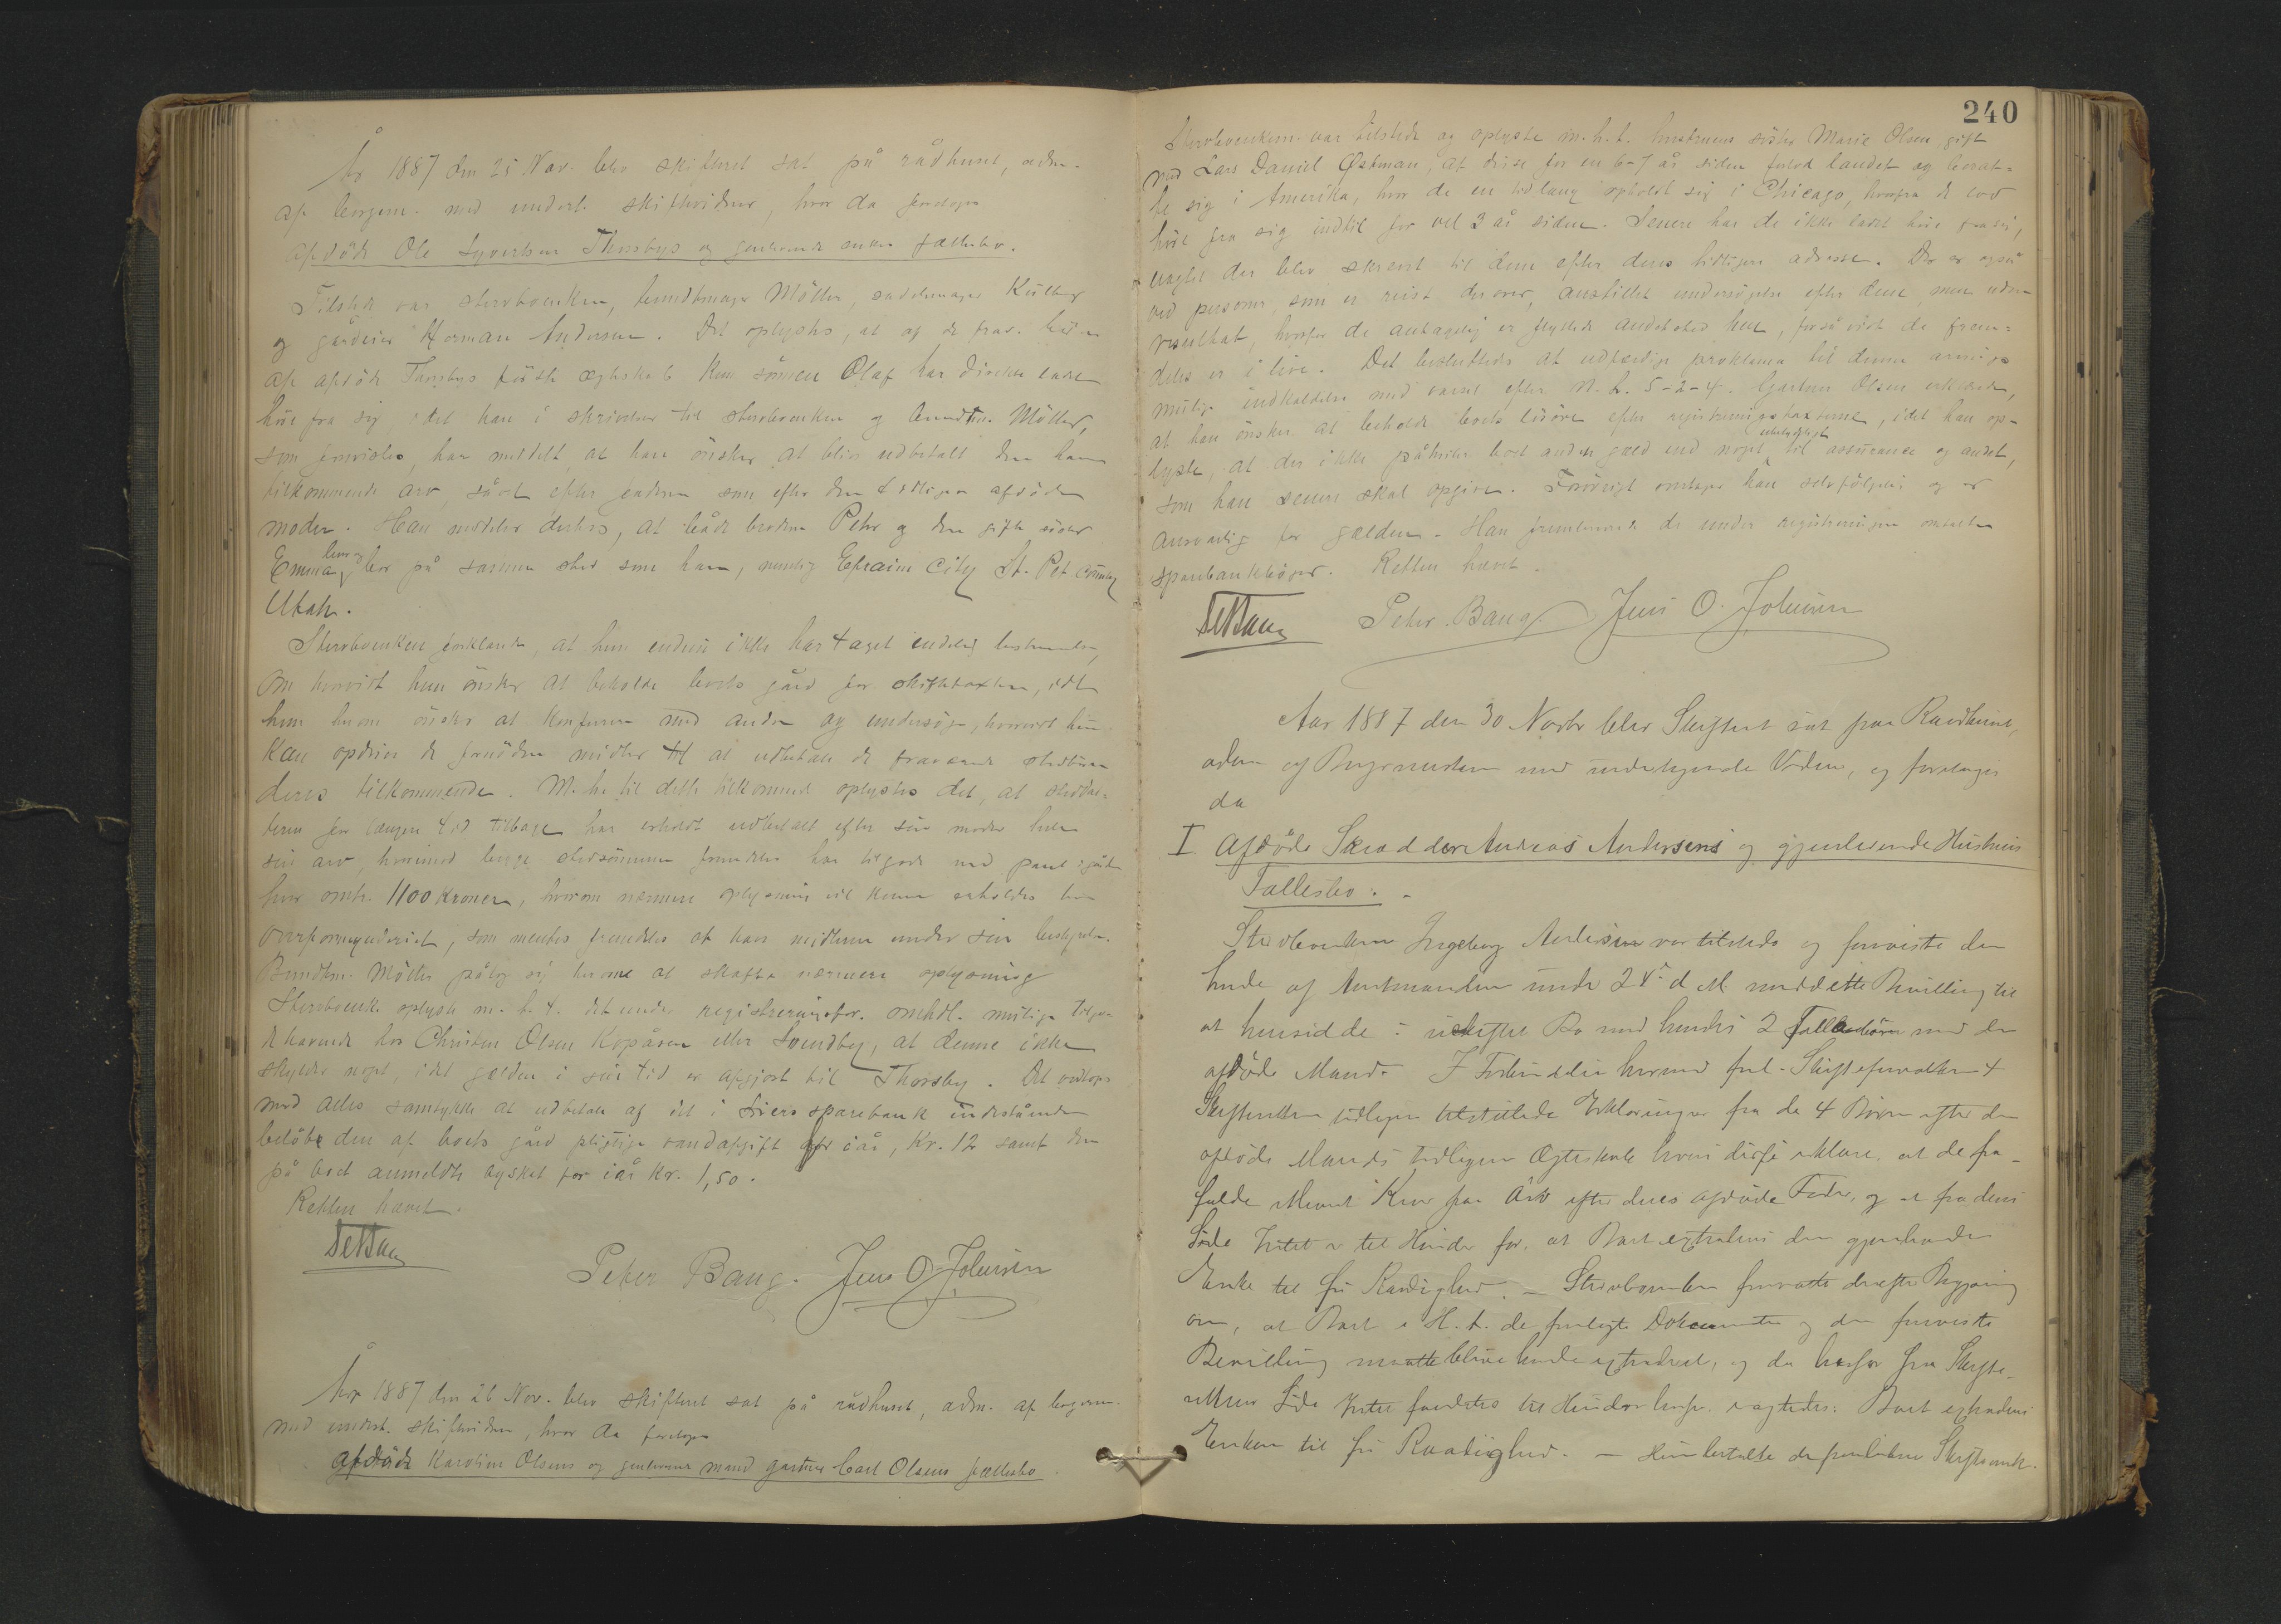 År 1887 den 25 Nov. blev skifteret sat på rådhuset, adm.
af borgerm. med undert. skiftevidner, hvor da foretoges
afdöde Ole Syvertsen Thorsbys og genlevende enkes fællesbo.
Tilstede var stervboenken, bundtmager Möller, sadelmager
og gårdeier Herman Andersen. Det oplystes, at af de frav.
af afdöde Thorsbys förste ægteskab kun sönnen Olaf har ladet
höre fra sig, idet han i skrivelser til stervboenken og bundtm. Möller,
som forevistes, har meddelt, at han önsker at blive udbetalt den ham
tilkommende arv, såvel efter faderen som efter den tidligere afdöde
moder. Han meddeler derhos, at både broderen Peter og den gifte söster
Emma lever og bor på samme sted som han, nemlig Efraim City St. Pet County
Utah.
Stervboenken forklarede, at hun endnu ikke har taget endelig bestemmelse,
om hvorvidt hun önsker at beholde boets gård for skiftetaxten, idet
hun önsker at konferere med andre og undersöge, hvorvidt hun
kan opdrive de fornödne midler til at udbetale de fraværende stedbörn
deres tilkommende. M. h. til dette tilkommende oplystes det, at steddat-
teren for længere tid tilbage har erholdt udbetalt efter sin moder hele
sin arv, hvorimod begge stedsönnerne fremdeles har tilgode med pant i gården
hver omtr. 1100 kroner, hvorom nærmere oplysning vil kunne erholdes hos
overformynderiet, som mentes fremdeles at have midlerne under sin bestyrelse.
Bundtm. Möller påtog sig at skaffe nærmere oplysning
Stervboenk. oplyste m. h. t. det under registreringsfor. omhdl. mulige tilgo-
dehavende hos Christen Olsen Kopåsen eller Svendby, at denne ikke
skylder noget, idet gælden i sin tid er afgjort til Thorsby. Det vedtoges
med alles samtykke at udbetale af det i Liers sparebank indestående
belöb den af boets gård pligtige vandafgift for iår, Kr. 12 samt den
på boet anmeldte byskat for iår Kr. 1,50.
Retten hævet.
Peter Bang. Jens O. Johnsen
År 1887 den 26 Nov. blev skifteret sat på rådhuset, adm. af borgerm.
med undert. skiftevidner, hvor da foretoges
afdöde Karoline Olsens og genlevende mand gartner Carl Olsens fællesbo.
240
Stervboenkem. var tilstede og oplyste m. h. t. hustruens söster Marie Olsen, gift
med Lars Daniel Østman, at disse for en 6-7 år siden forlod landet og bosat-
te sig i Amerika, hvor de en tidlang opholdt sig i Chicago, hvorfra de lod
höre fra sig indtil for vel 3 år siden. Senere har de ikke ladet höre fra sig,
uagtet der blev skrevet til dem efter deres tidligere adresse. Der er også
ved personer, som er reist derover, anstillet undersögelse efter dem, men uden
resultat, hvorfor de antagelig er flyttede andetsteds hen, forsåvidt de frem-
deles er i live. Det besluttedes at udfærdige proklama til denne arvings
mulige indkaldelse med varsel efter N. L. 5-2-4. Gartner Olsen erklærede,
at han önsker at beholde boets lösöre efter registreringstaxterne, idet han op-
lyste, at der ikke påhviler boet anden gæld end noget ubetydeligt til assurance og andet,
som han senere skal opgive. Forövrigt overtager han selvfölgelig og er
ansvarlig for gælden. Han fremleverede de under registreringen omtalte
sparebankböger. Retten hævet.
Peter Bang. Jens O. Johnsen
Aar 1887 den 30 Novbr blev Skifteret sat paa Raadhuset,
adm af Borgermesteren med undertegnede Vidner, og foretoges
da
I Afdöde Skrædder Andreas Andersens og gjenlevende Hustrues
Fællesbo. -
Stervboenken Ingeborg Andersen var tilstede og foreviste den
hende af Amtmanden under 24de d M meddelte Bevilling til
at hensidde i uskiftet Bo med hendes 2 Fællesbörn med den
afdöde Mand. I Forbindelse hermed freml. Skifteforvalteren 4
Skifteretten tidligere tilstillede Erklæringer fra de 4 Börn efter den
afdöde Mands tidligere Ægteskab hvori disse erklære, at de fra-
falde ethvert Krav paa Arv efter deres afdöde Fader, og at fra deres
Side Intet er til Hinder for, at Boet extraderes den gjenlevende
Enke til fri Raadighed. - Stervboenken fremsatte derefter Begjæring
om, at Boet i H. t. de fremlagte Dokumenter og den foreviste
Bevilling maatte blive hende extraderet, og da herfor fra Skifte-
rettens Side Intet fandtes til Hinder herfor, eragtedes: Boet extraderes
Enken til fri Raadighed. - Hun betalte